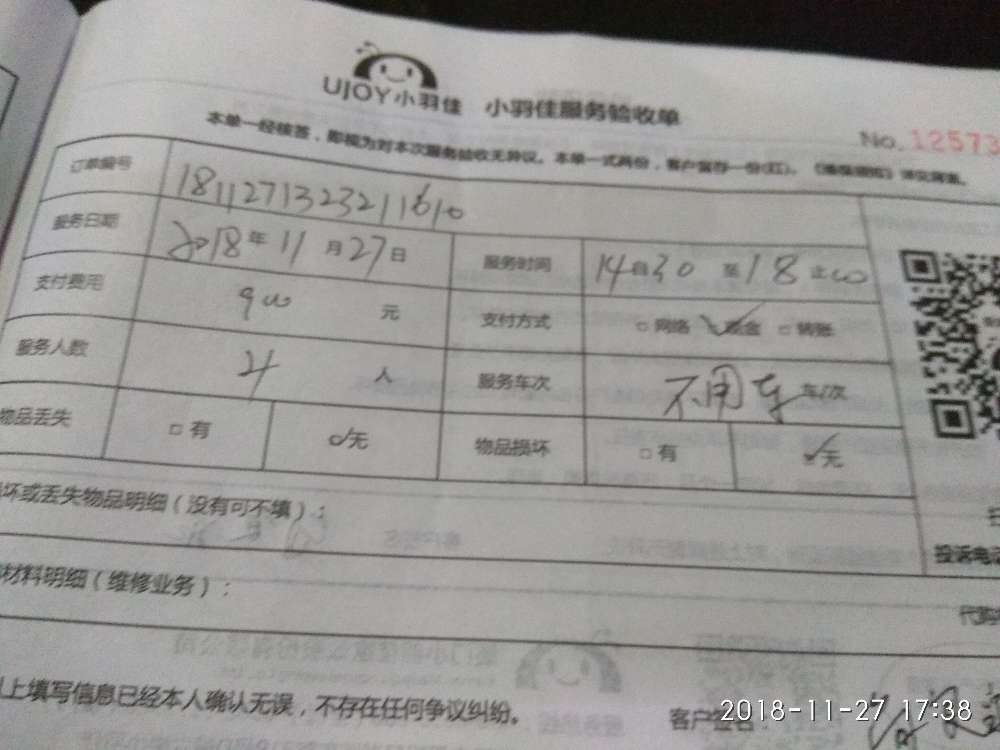 UJOY小羽佳 小羽佳服务验收单
No. 12573
本单一经核签，即视为对本次服务验收无异议。本单一式两份，客户留存一份(红)。
订单编号 1811271323211610
服务日期 2018年11月27日 服务时间 14时30至18止00
支付费用 900元 支付方式 □网络 ☑现金 □转账
服务人数 4人 服务车次 不用车 车/次
物品丢失 □有 ☑无 物品损坏 □有 ☑无
坏或丢失物品明细（没有可不填）：
投诉电话
材料明细（维修业务）：
上填写信息已经本人确认无误，不存在任何争议纠纷。 客户签名：
2018-11-27 17:38